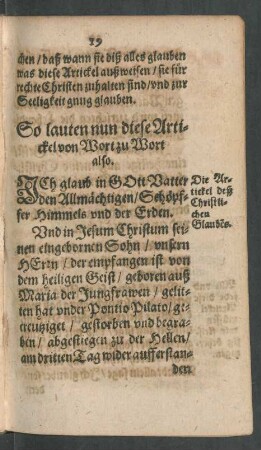 19
chen / daß wann sie diß alles glauben
was diese Artickel außweisen / sie für
rechte Christen zuhalten sind / vnd zur
Seeligkeit gnug glauben.
So lauten nun diese Arti-
ckel von Wort zu Wort
also.
ICh glaub in GOtt Vatter
den Allmächtigen / Schöpf-
fer Himmels vnd der Erden.
Die Ar-
tickel deß
Christli-
chen
Glaubēs.
Vnd in Jesum Christum sei-
nen eingebornen Sohn / vnsern
HErrn / der empfangen ist von
dem heiligen Geist / geboren auß
Maria der Jungfrawen / gelit-
ten hat vnder Pontio Pilato / ge-
creutziget / gestorben vnd begra-
ben / abgestiegen zu der Hellen /
am dritten Tag wider aufferstan-
den